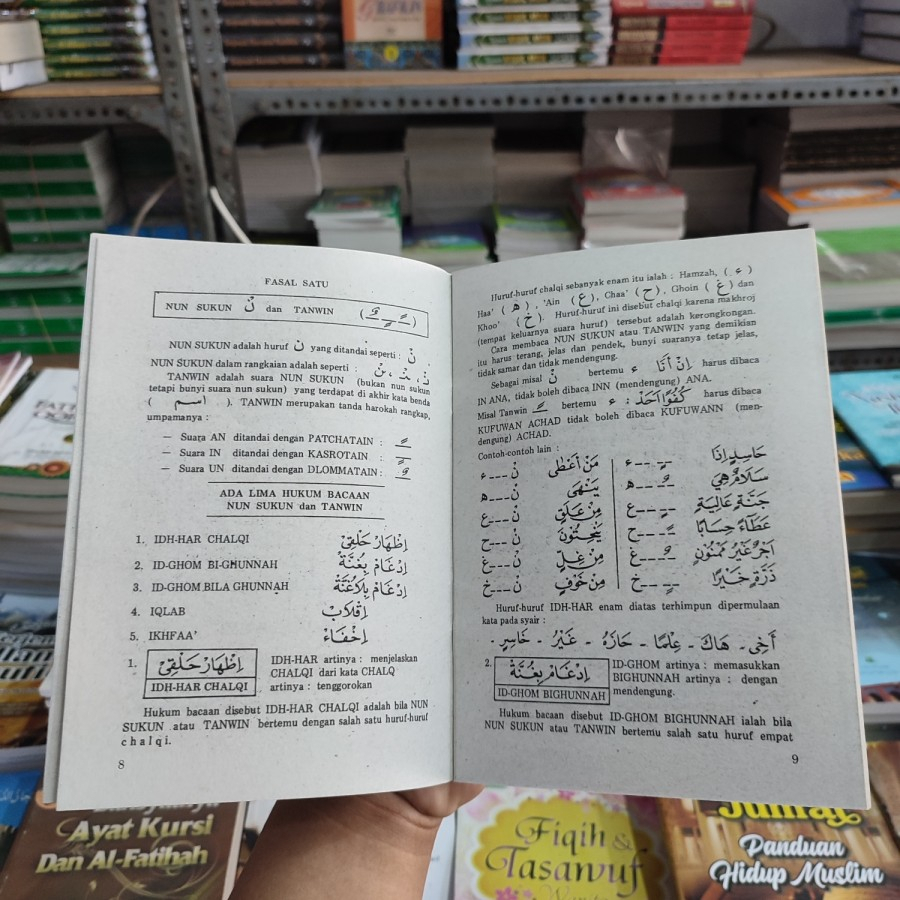 FASAL SATU
NUN SUKUN نْ dan TANWIN ( ـًـ ـٍـ ـٌـ )
NUN SUKUN adalah huruf ن yang ditandai seperti : نْ
NUN SUKUN dalam rangkaian adalah seperti :
TANWIN adalah suara NUN SUKUN (bukan nun sukun
tetapi bunyi suara nun sukun) yang terdapat di akhir kata benda
( اسم ). TANWIN merupakan tanda harokah rangkap,
umpamanya :
— Suara AN ditandai dengan PATCHATAIN : ـًـ
— Suara IN ditandai dengan KASROTAIN : ـٍـ
— Suara UN ditandai dengan DLOMMATAIN : ـٌـ
ADA LIMA HUKUM BACAAN
NUN SUKUN dan TANWIN
1. IDH-HAR CHALQI اِظْهَارْ حَلْقِيْ
2. ID-GHOM BI-GHUNNAH اِدْغَامْ بِغُنَّةْ
3. ID-GHOM BILA GHUNNAH اِدْغَامْ بِلَاغُنَّةْ
4. IQLAB اِقْلَابْ
5. IKHFAA' اِخْفَاءْ
1. اِظْهَارْ حَلْقِيْ
IDH-HAR CHALQI
IDH-HAR artinya : menjelaskan
CHALQI dari kata CHALQ
artinya : tenggorokan
Hukum bacaan disebut IDH-HAR CHALQI adalah bila NUN
SUKUN atau TANWIN bertemu dengan salah satu huruf-huruf
chalqi.
8
Huruf-huruf chalqi sebanyak enam itu ialah : Hamzah, ( ء )
Haa' ( ه ), 'Ain ( ع ), Chaa' ( ح ), Ghoin ( غ ) dan
Khoo' ( خ ). Huruf-huruf ini disebut chalqi karena makhroj
(tempat keluarnya suara huruf) tersebut adalah kerongkongan.
Cara membaca NUN SUKUN atau TANWIN yang demikian
itu harus terang, jelas dan pendek, bunyi suaranya tetap jelas,
tidak samar dan tidak mendengung.
Sebagai misal نْ bertemu ء اِنْ اَنَا harus dibaca
IN ANA, tidak boleh dibaca INN (mendengung) ANA.
Misal Tanwin ـًـ bertemu ء : كُفُوًا اَحَدْ harus dibaca
KUFUWAN ACHAD tidak boleh dibaca KUFUWANN (men-
dengung) ACHAD.
Contoh-contoh lain :
نْ ــ ء مَنْ اَعْطٰى
نْ ــ ه يَنْهٰى
نْ ــ ع مِنْ عَلَقٍ
نْ ــ ح يَنْحِتُوْنَ
نْ ــ غ مِنْ غِلٍّ
نْ ــ خ مِنْ خَوْفٍ
ـٍـ ــ ء حَاسِدٍ اِذَا
ـٌـ ــ ه سَلَامٌ هِيَ
ـٍـ ــ ع جَنَّةٍ عَالِيَةٍ
ـًـ ــ ح عَطَاءً حِسَابًا
ـٌـ ــ غ اَجْرٌ غَيْرُ مَمْنُوْنٍ
ـٍـ ــ خ ذَرَّةٍ خَيْرًا
Huruf-huruf IDH-HAR enam diatas terhimpun dipermulaan
kata pada syair :
اَخِى - هَاكَ - عِلْمًا - حَازَهُ - غَيْرُ - خَاسِرٍ -
2. اِدْغَامْ بِغُنَّةْ
ID-GHOM BIGHUNNAH
ID-GHOM artinya : memasukkan
BIGHUNNAH artinya : dengan
mendengung.
Hukum bacaan disebut ID-GHOM BIGHUNNAH ialah bila
NUN SUKUN atau TANWIN bertemu salah satu huruf empat
9
Ayat Kursi
Dan Al-Fatihah
Fiqih &
Tasawuf
Panduan
Hidup Muslim